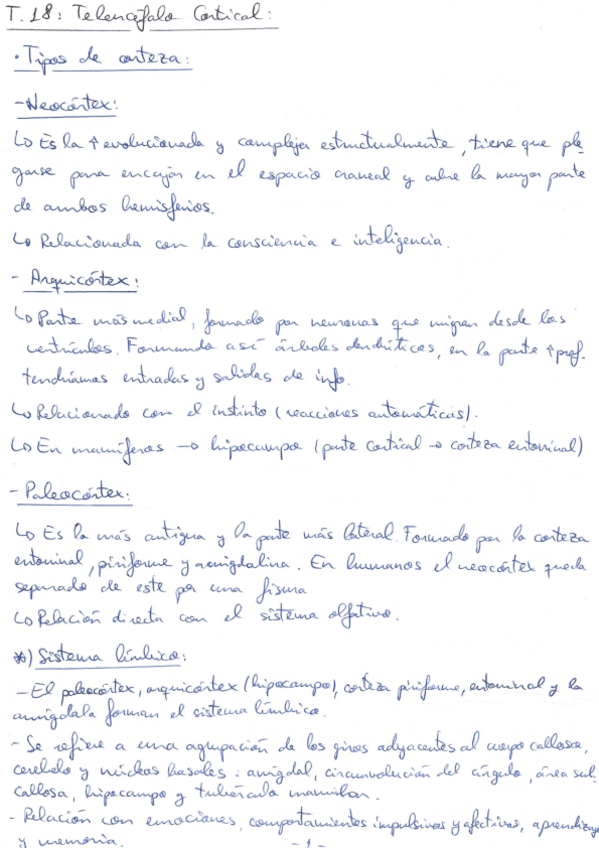 T.18: Telencéfalo Cortical:
· Tipos de corteza:
- Neocórtex:
↳ Es la ↑ evolucionada y compleja estructualmente, tiene que ple
garse para encajar en el espacio craneal y cubre la mayor parte
de ambos hemisferios.
↳ Relacionada con la consciencia e inteligencia.
- Arquicórtex:
↳ Parte más medial, formado por neuronas que migran desde los
ventrículos. Formando así árboles dendríticos, en la parte ↑ prof.
tendríamos entradas y salidas de info.
↳ Relacionado con el instinto (reacciones automáticas).
↳ En mamíferos → hipocampo (parte cortical → corteza entorrinal)
- Paleocórtex:
↳ Es la más antigua y la parte más lateral. Formado por la corteza
entorrinal, piriforme y amigdalina. En humanos el neocórtex queda
separado de este por una fisura
↳ Relación directa con el sistema olfativo.
*) Sistema límbico:
- El paleocórtex, arquicórtex (hipocampo), corteza piriforme, entorrinal y la
amígdala forman el sistema límbico.
- Se refiere a una agrupación de los giros adyacentes al cuerpo calloso,
cerebelo y núcleos basales: amígdal, circunvolución del cíngulo, área sub
callosa, hipocampo y tubérculo mamilar.
- Relación con emociones, comportamientos impulsivos y afectivos, aprendizaje
y memoria.
- 1 -